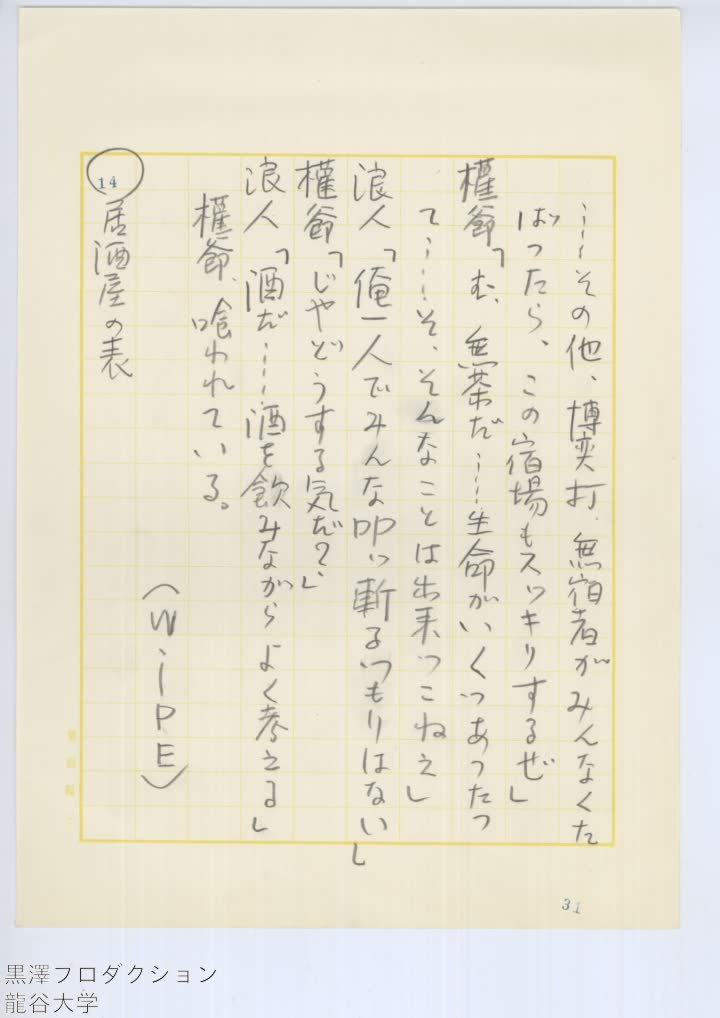 ……その他、博奕打、無宿者がみんなくた
ばつたら、この宿場もスッキりするぜ」
權爺「む、無茶だ……生命がいくつあつたつ
て……そ、そんなことは出来つこねえ」
浪人「俺一人でみんな叩ッ斬るつもりはない」
權爺「じやどうする気だ?」
浪人「酒だ……酒を飲みながらよく考える」
權爺、喰われている。
(WiPE)
14 居酒屋の表
31
黒澤フロダクション
龍谷大学